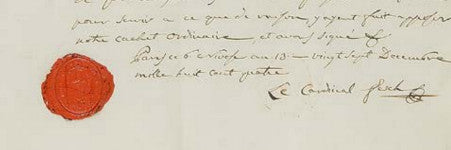 pour servir a ce que de raison, y ayant fait apposer
notre cachet ordinaire, et avons signé
Paris ce 6 nivose an 13 - vingt sept Decembre
mille huit cent quatre
Le Cardinal Fesch